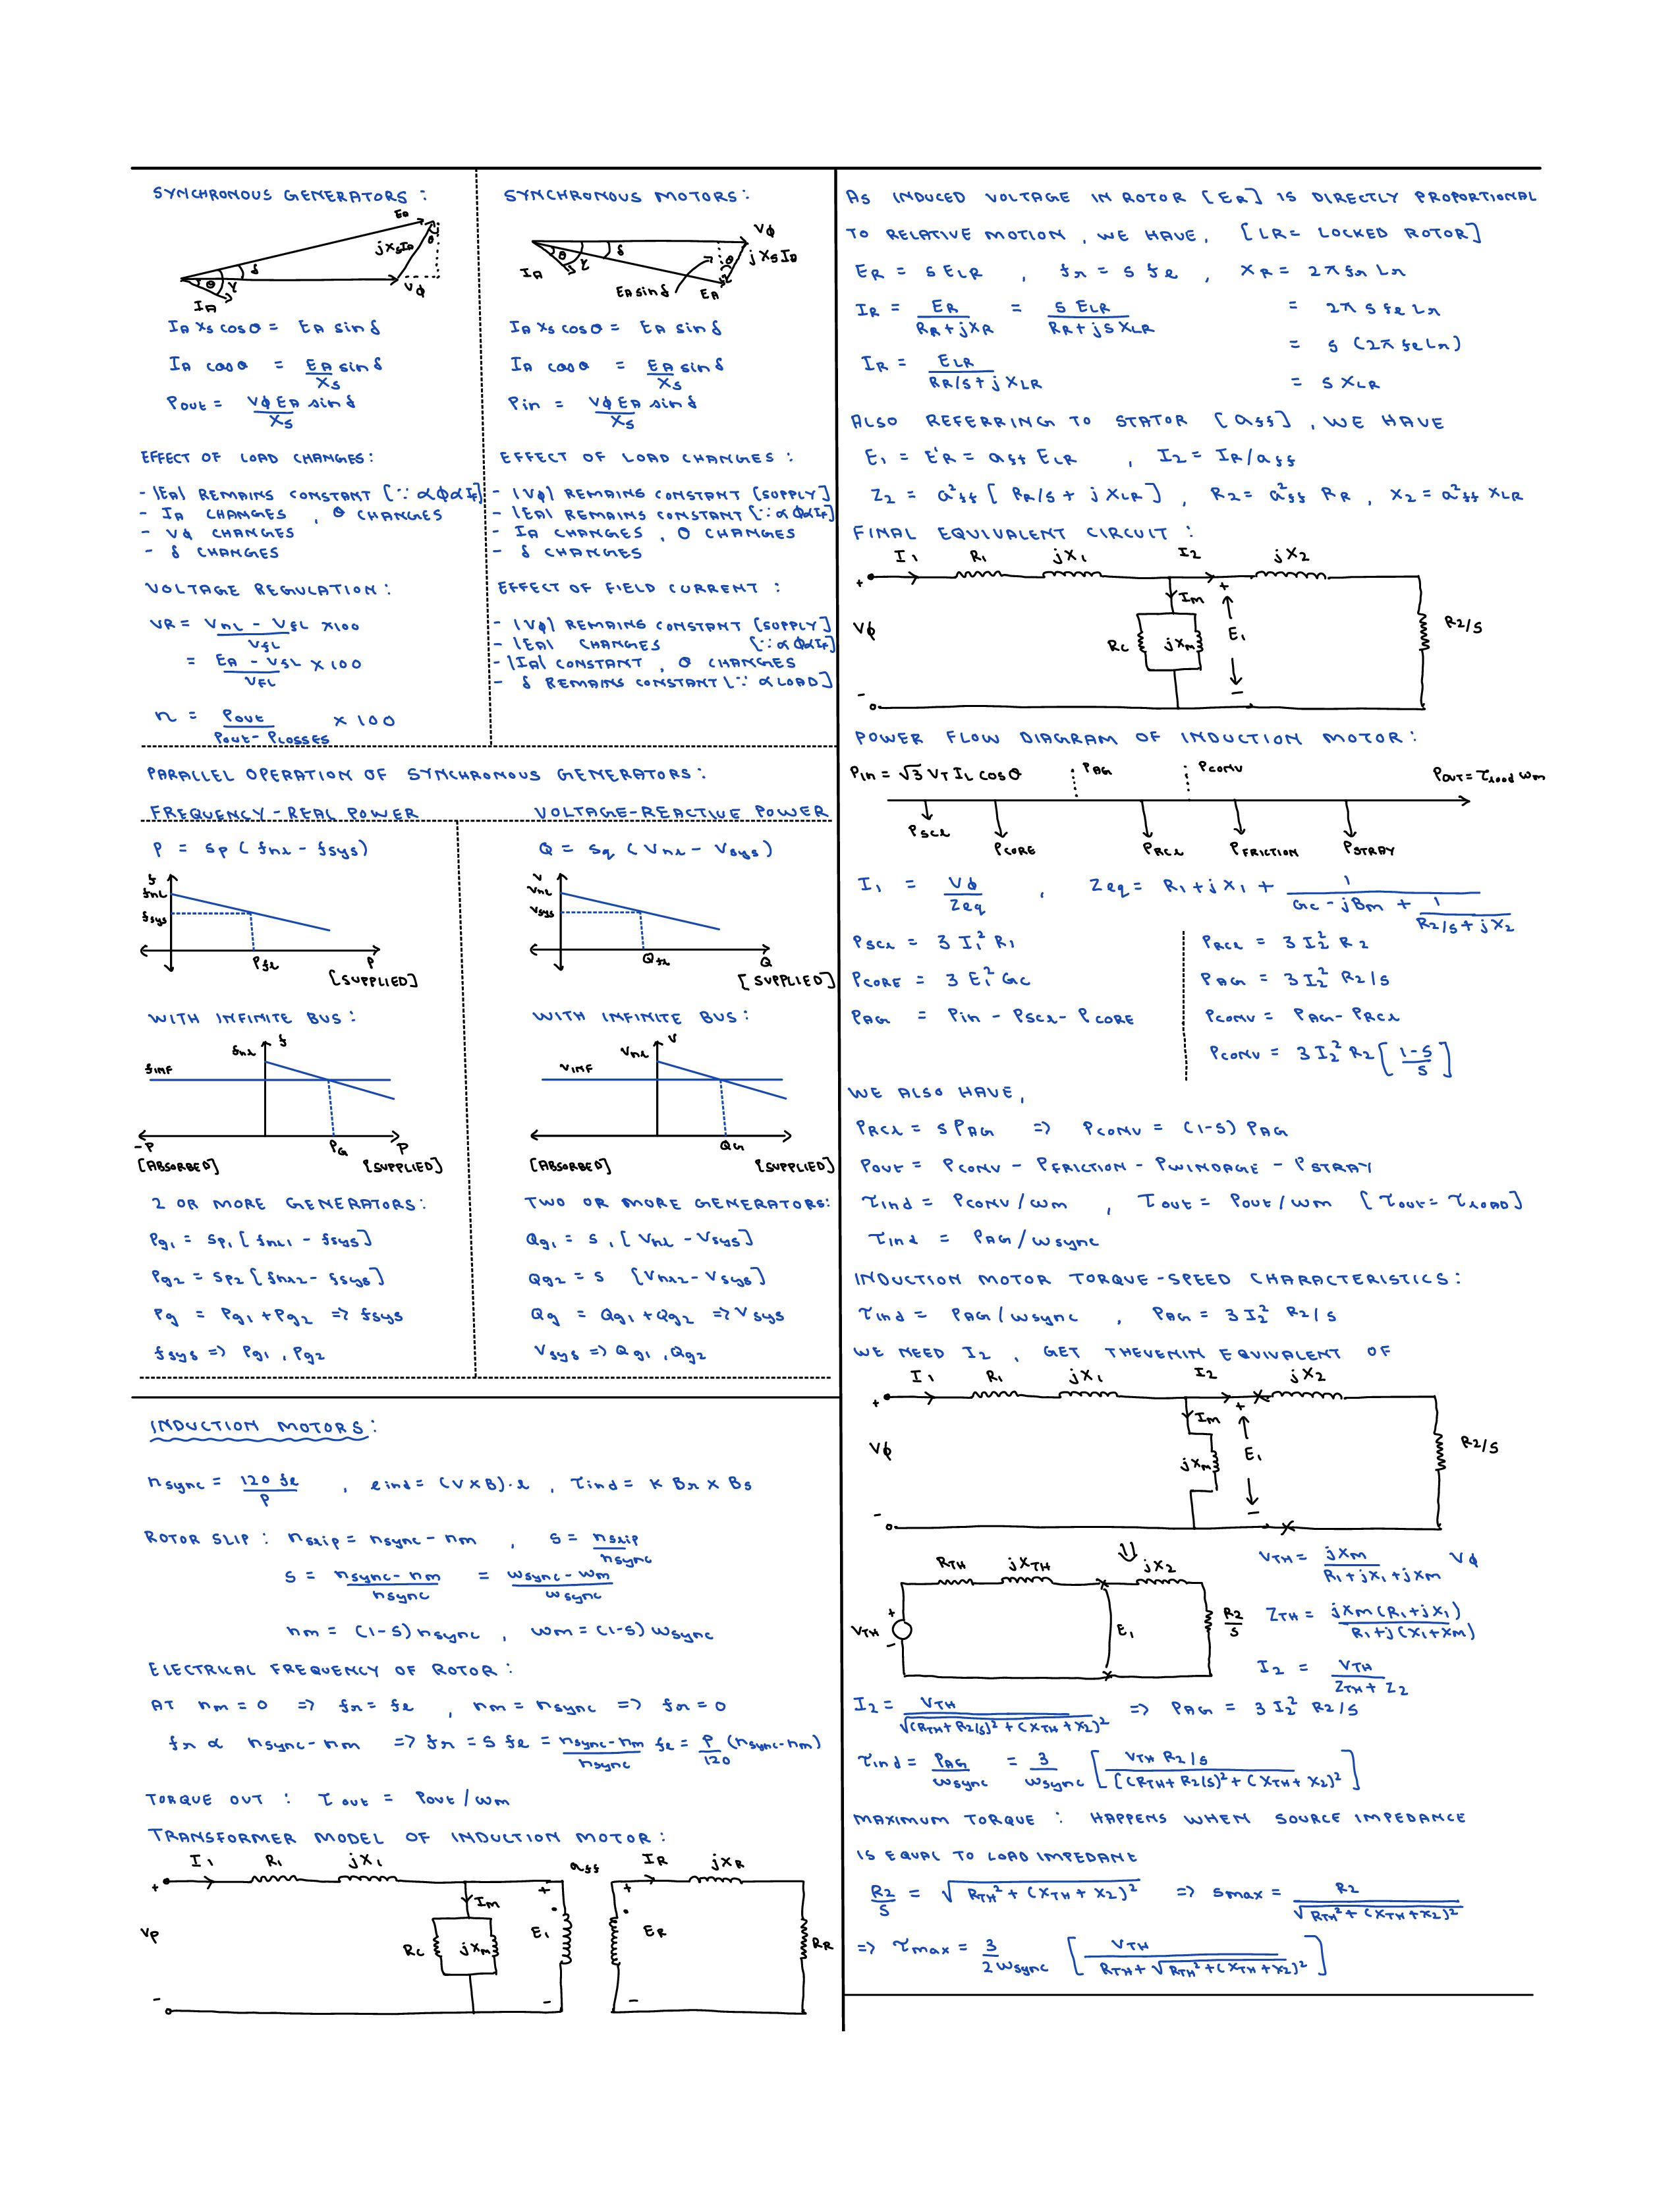 SYNCHRONOUS GENERATORS :
EA
jXsIA
θ
δ
θ γ
Vφ
IA
IA Xs cosθ = EA sinδ
IA cosθ = EA sinδ / Xs
Pout = Vφ EA sinδ / Xs
EFFECT OF LOAD CHANGES :
- |EA| REMAINS CONSTANT [∵ αφαIf]
- IA CHANGES , θ CHANGES
- Vφ CHANGES
- δ CHANGES
VOLTAGE REGULATION :
VR = Vnl - Vfl / Vfl ×100
= EA - Vfl / VFL × 100
n = Pout / Pout- PLOSSES × 100
SYNCHRONOUS MOTORS :
Vφ
δ
θ γ
θ
jXsIA
IA
EA sinδ
EA
IA Xs cosθ = EA sinδ
IA cosθ = EA sinδ / Xs
Pin = Vφ EA sinδ / Xs
EFFECT OF LOAD CHANGES :
- |Vφ| REMAINS CONSTANT [SUPPLY]
- |EA| REMAINS CONSTANT [∵ αφαIf]
- IA CHANGES , θ CHANGES
- δ CHANGES
EFFECT OF FIELD CURRENT :
- |Vφ| REMAINS CONSTANT [SUPPLY]
- |EA| CHANGES [∵ αφαIf]
- |IA| CONSTANT , θ CHANGES
- δ REMAINS CONSTANT [∵ αLOAD]
PARALLEL OPERATION OF SYNCHRONOUS GENERATORS :
FREQUENCY - REAL POWER
P = Sp ( fnl - fsys )
f
fnL
fsys
Pfl
P
[SUPPLIED]
WITH INFINITE BUS :
fnl
f
fINF
-P
PG
P
[ABSORBED]
[SUPPLIED]
2 OR MORE GENERATORS :
Pg1 = Sp1 [ fnl1 - fsys ]
Pg2 = Sp2 [ fnl2 - fsys ]
Pg = Pg1 + Pg2 => fsys
fsys => Pg1 , Pg2
VOLTAGE-REACTIVE POWER
Q = Sq ( Vnl - Vsys )
V
Vnl
Vsys
Qfl
Q
[SUPPLIED]
WITH INFINITE BUS :
Vnl
V
VINF
QG
[ABSORBED]
[SUPPLIED]
TWO OR MORE GENERATORS :
Qg1 = S1 [ Vnl - Vsys ]
Qg2 = S [ Vnl2 - Vsys ]
Qg = Qg1 + Qg2 => Vsys
Vsys => Qg1 , Qg2
INDUCTION MOTORS :
nsync = 120 fe / P , eind = (V×B)·l , τind = K Br × Bs
ROTOR SLIP : nslip = nsync - nm , S = nslip / nsync
S = nsync - nm / nsync = ωsync - ωm / ωsync
nm = (1-S) nsync , ωm = (1-S) ωsync
ELECTRICAL FREQUENCY OF ROTOR :
AT nm = 0 => fr = fe , nm = nsync => fr = 0
fr α nsync - nm => fr = S fe = nsync - nm / nsync fe = P / 120 (nsync - nm)
TORQUE OUT : τout = Pout / ωm
TRANSFORMER MODEL OF INDUCTION MOTOR :
I1 R1 jX1 aff IR jXR
+ + +
IM
VP RC jXM E1 ER RR
- - -
AS INDUCED VOLTAGE IN ROTOR [ER] IS DIRECTLY PROPORTIONAL
TO RELATIVE MOTION , WE HAVE , [LR = LOCKED ROTOR]
ER = S ELR , fr = S fe , XR = 2π fr Lr
IR = ER / RR + jXR = S ELR / RR + jS XLR
= 2π S fe Lr
= S (2π fe Lr)
IR = ELR / RR/S + j XLR
= S XLR
ALSO REFERRING TO STATOR [aff] , WE HAVE
E1 = E'R = aff ELR , I2 = IR / aff
Z2 = a²ff [ RR/S + j XLR ] , R2 = a²ff RR , X2 = a²ff XLR
FINAL EQUIVALENT CIRCUIT :
I1 R1 jX1 I2 jX2
+ IM +
Vφ RC jXM E1 R2/S
- -
POWER FLOW DIAGRAM OF INDUCTION MOTOR :
Pin = √3 VT IL cosθ PAG PCONV POUT = τload ωm
PSCL PCORE PRCL PFRICTION PSTRAY
I1 = Vφ / Zeq , Zeq = R1 + jX1 + 1 / GC - jBM + 1 / R2/S + jX2
PSCL = 3 I1² R1
PCORE = 3 E1² GC
PAG = Pin - PSCL - PCORE
PRCL = 3 I2² R2
PAG = 3 I2² R2/S
PCONV = PAG - PRCL
PCONV = 3 I2² R2 [ 1-S / S ]
WE ALSO HAVE ,
PRCL = S PAG => PCONV = (1-S) PAG
POUT = PCONV - PFRICTION - PWINDAGE - PSTRAY
τind = PCONV / ωm , τout = Pout / ωm [ τout = τLOAD ]
τind = PAG / ωsync
INDUCTION MOTOR TORQUE-SPEED CHARACTERISTICS :
τind = PAG / ωsync , PAG = 3 I2² R2/S
WE NEED I2 , GET THEVENIN EQUIVALENT OF
I1 R1 jX1 I2 jX2
+ IM +
Vφ jXM E1 R2/S
- -
RTH jXTH jX2
+
VTH E1 R2/S
-
VTH = jXM / R1 + jX1 + jXM Vφ
ZTH = jXM (R1 + jX1) / R1 + j(X1 + XM)
I2 = VTH / ZTH + Z2
I2 = VTH / √(RTH + R2/S)² + (XTH + X2)² => PAG = 3 I2² R2/S
τind = PAG / ωsync = 3 / ωsync [ VTH R2/S / [(RTH + R2/S)² + (XTH + X2)² ]
MAXIMUM TORQUE : HAPPENS WHEN SOURCE IMPEDANCE
IS EQUAL TO LOAD IMPEDANT
R2 / S = √ RTH² + (XTH + X2)² => Smax = R2 / √RTH² + (XTH + X2)²
=> τmax = 3 / 2ωsync [ VTH / RTH + √RTH² + (XTH + X2)² ]